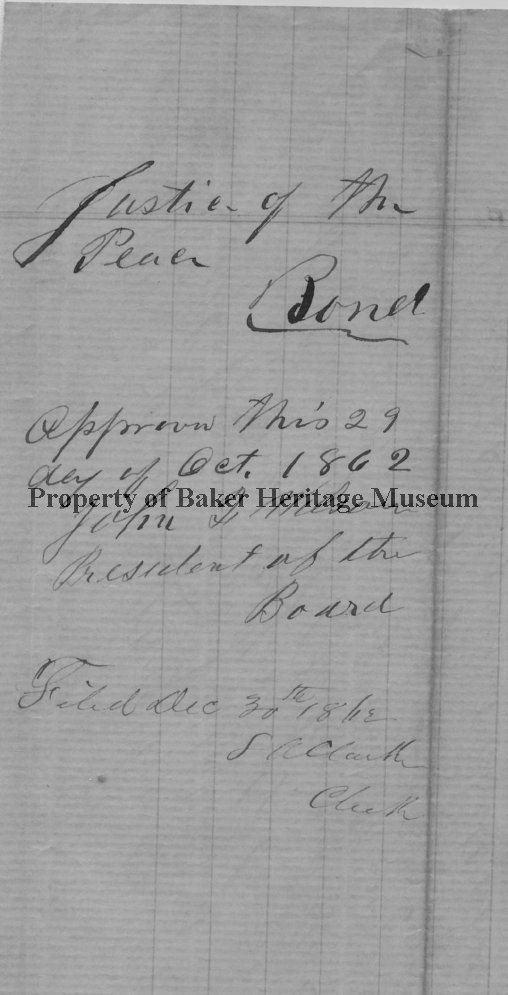 Justice of the
Peace
Bond
Approved this 29
day of Oct. 1862
Property of Baker Heritage Museum
John
President of the
Board
Filed Dec 30th 1862
S A Clark
Clerk